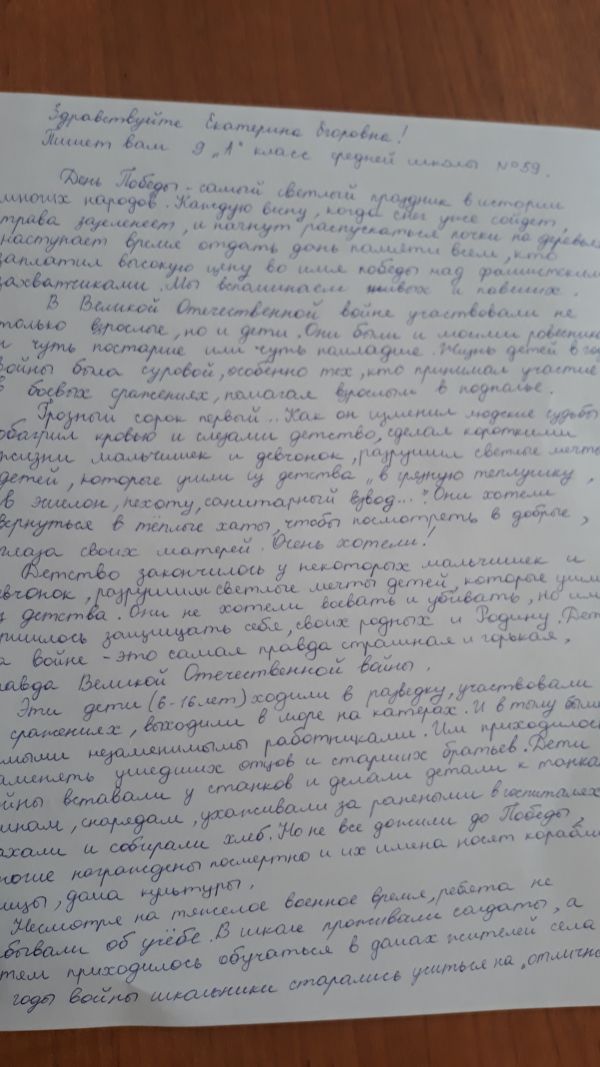 Здравствуйте Екатерина Егоровна!
Пишет вам 9 „А" класс средней школы №59.
День Победы - самый светлый праздник в истории
многих народов. Каждую весну, когда снег уже сойдет,
трава зазеленеет, и начнут распускаться почки на деревьях
наступает время отдать дань памяти всем, кто
заплатил высокую цену во имя победы над фашистским
захватчиками. Мы вспоминаем живых и павших.
В Великой Отечественной войне участвовали не
только взрослые, но и дети. Они были и моими ровесника
и чуть постарше или чуть помладше. Жизнь детей в го
войны была суровой, особенно тех, кто принимал участие
в боевых сражениях, помагал взрослым в подполье.
Грозный сорок первый... Как он изменил людские судьбы
обагрил кровью и слезами детство, сделал короткими
жизни мальчишек и девчонок, разрушил светлые мечты
детей, которые ушли из детства „в грязную теплушку,
в эшелон, пехоту, санитарный взвод...". Они хотели
вернуться в тёплые хаты, чтобы посмотреть в добрые,
глаза своих матерей. Очень хотели!
Детство закончилось у некоторых мальчишек и
евчонок, разрушили светлые мечты детей, которые ушли
з детства. Они не хотели воевать и убивать, но им
ришлось защищать себя, своих родных и Родину. Дет
а войне - это самая правда страшная и горькая,
равда Великой Отечественной войны.
Эти дети (6-16 лет) ходили в разведку, участвовали
сражениях, выходили в море на катерах. И в тылу были
мыми незаменимымы работниками. Им приходилось
аменять ушедших отцов и старших братьев. Дети
ойны вставали у станков и делали детали к танка
инам, снарядам, ухаживали за ранеными в госпиталях
ахали и собирали хлеб. Но не все дожили до Победы,
ногие награждены посмертно и их имена носят корабли
лицы, дома культуры.
Несмотря на тяжелое военное время, ребята не
бывали об учёбе. В школе проживали солдаты, а
тям приходилось обучаться в домах жителей села
годы войны школьники старались учиться на „отлично